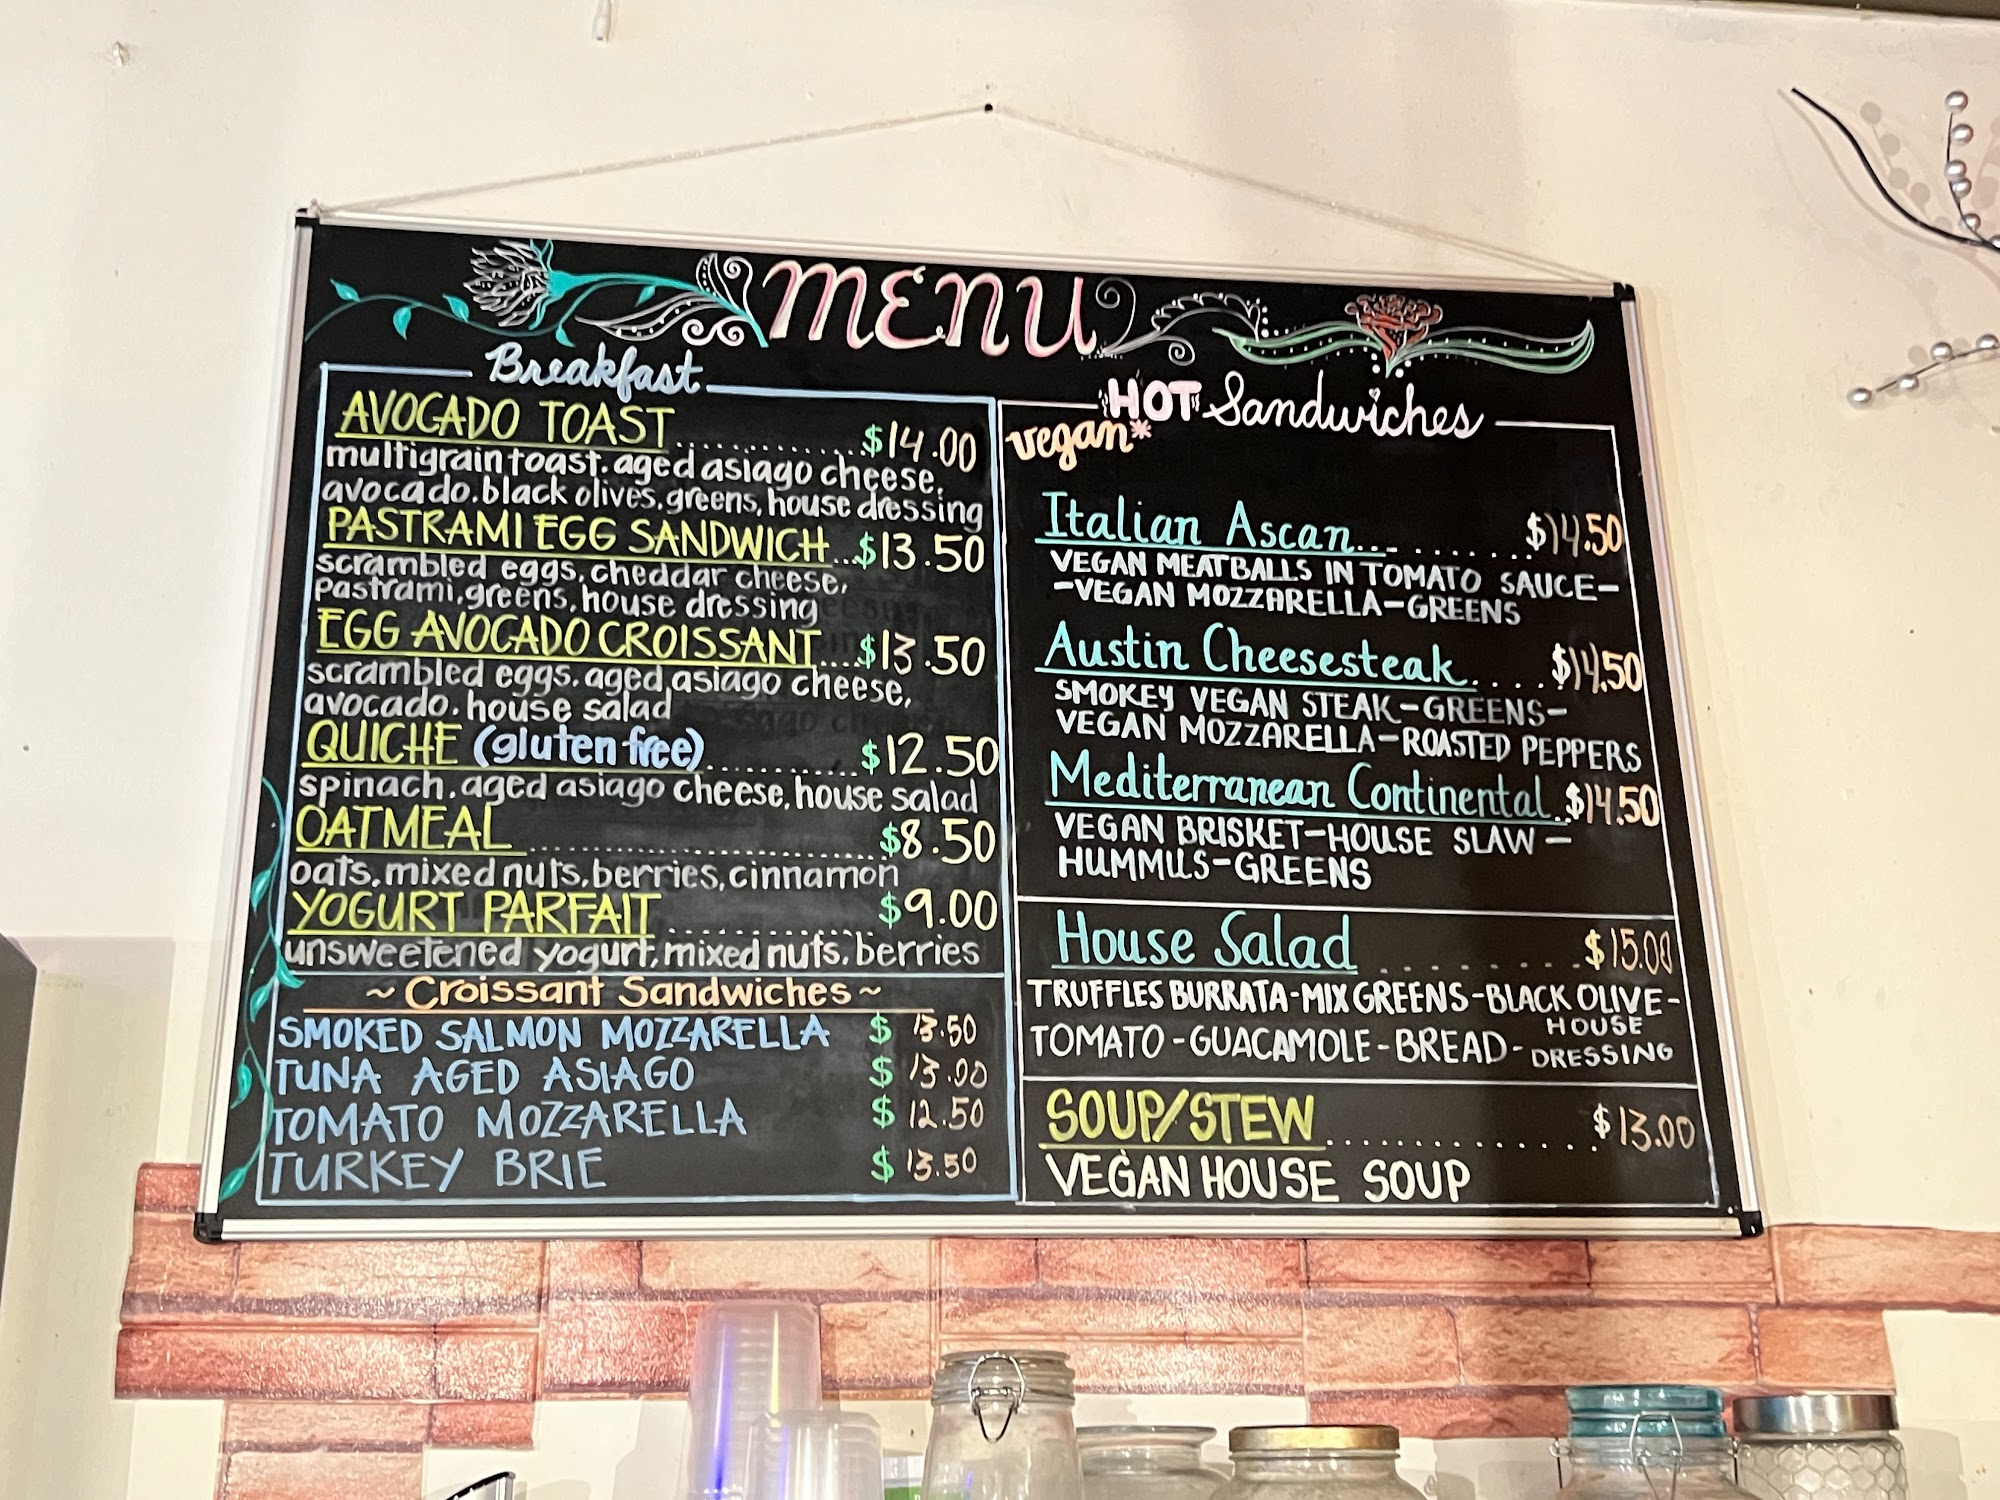 MENU
Breakfast
AVOCADO TOAST..........$14.00
multigrain toast. aged asiago cheese,
avocado. black olives. greens, house dressing
PASTRAMI EGG SANDWICH...$13.50
scrambled eggs, cheddar cheese,
pastrami, greens, house dressing
EGG AVOCADO CROISSANT....$13.50
scrambled eggs. aged asiago cheese,
avocado. house salad
QUICHE (gluten free)............$12.50
spinach. aged asiago cheese, house salad
OATMEAL..............................$8.50
oats, mixed nuts, berries, cinnamon
YOGURT PARFAIT................$9.00
unsweetened yogurt, mixed nuts. berries
~Croissant Sandwiches~
SMOKED SALMON MOZZARELLA $13.50
TUNA AGED ASIAGO $13.00
TOMATO MOZZARELLA $12.50
TURKEY BRIE $13.50
HOT Sandwiches
vegan*
Italian Ascan..........$14.50
VEGAN MEATBALLS IN TOMATO SAUCE-
-VEGAN MOZZARELLA-GREENS
Austin Cheesesteak.....$14.50
SMOKEY VEGAN STEAK-GREENS-
VEGAN MOZZARELLA-ROASTED PEPPERS
Mediterranean Continental..$14.50
VEGAN BRISKET-HOUSE SLAW-
HUMMUS-GREENS
House Salad..........$15.00
TRUFFLES BURRATA-MIX GREENS-BLACK OLIVE-
TOMATO-GUACAMOLE-BREAD-HOUSE DRESSING
SOUP/STEW..............$13.00
VEGAN HOUSE SOUP